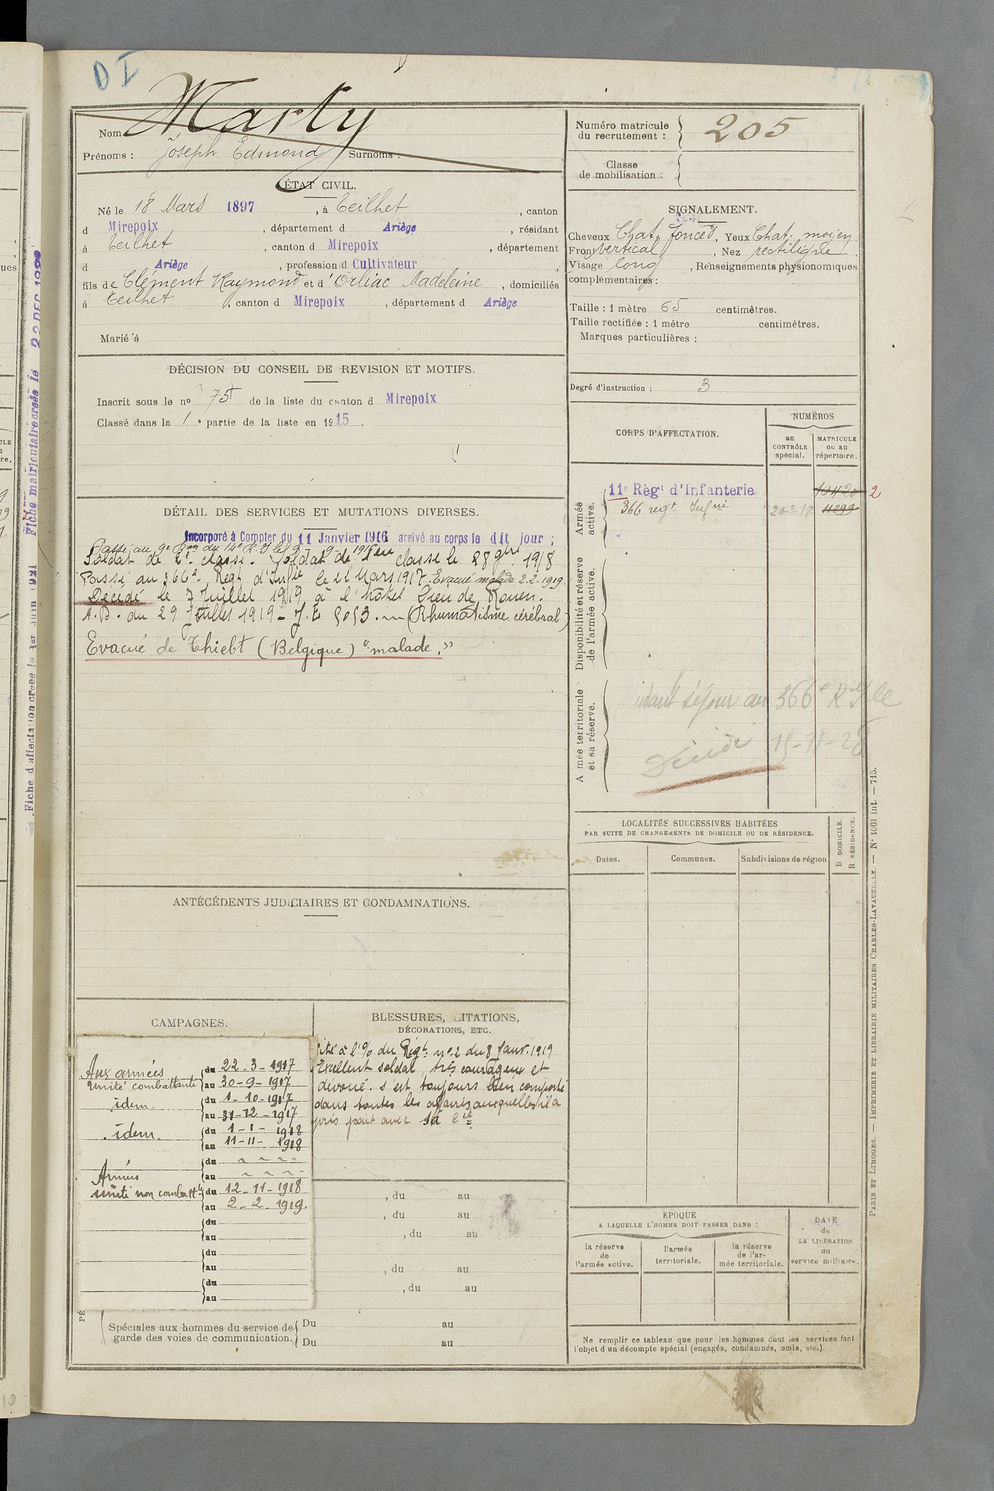 D I
Nom Marty
Prénoms : Joseph Edmond Surnoms :
Numéro matricule du recrutement : 205
Classe de mobilisation :
ÉTAT CIVIL.
Né le 18 Mars 1897, à Teilhet, canton
d Mirepoix, département d Ariège, résidant
à Teilhet, canton d Mirepoix, département
d Ariège, profession d Cultivateur
fils de Clément Raymond et d'Orliac Madeleine, domiciliés
à Teilhet, canton d Mirepoix, département d Ariège
Marié à
SIGNALEMENT.
Cheveux Chat. foncé, Yeux Chat. moyen
Front vertical, Nez rectiligne
Visage long, Renseignements physionomiques
complémentaires :
Taille : 1 mètre 65 centimètres.
Taille rectifiée : 1 mètre centimètres.
Marques particulières :
Degré d'instruction : 3
DÉCISION DU CONSEIL DE REVISION ET MOTIFS.
Inscrit sous le nº 75 de la liste du canton d Mirepoix
Classé dans la 1e partie de la liste en 1915.
DÉTAIL DES SERVICES ET MUTATIONS DIVERSES.
Incorporé à Compter du 11 Janvier 1916 arrivé au corps le dit jour ;
Soldat de 2e classe. Soldat de 1ère classe le 28 9bre 1918
Passé au 366e Régt d'Infie le 22 Mars 1917. Evacué malade 2.2.1919.
Décédé le 7 Juillet 1919 à l'hôtel Dieu de Rouen.
A.D. du 29 Juillet 1919 (Rhumatisme cérébral)
Evacué de Thielt (Belgique) "malade."
CORPS D'AFFECTATION.
NUMÉROS
au CONTRÔLE spécial.
MATRICULE ou au répertoire.
Armée active.
11e Régt d'Infanterie 2
366 regt Infie
Disponibilité et réserve de l'armée active.
Armée territoriale et sa réserve.
séjour au 366e
Décédé
LOCALITÉS SUCCESSIVES HABITÉES
PAR SUITE DE CHANGEMENTS DE DOMICILE OU DE RÉSIDENCE.
Dates. Communes. Subdivisions de région
D DOMICILE.
R RÉSIDENCE.
ANTÉCÉDENTS JUDICIAIRES ET CONDAMNATIONS.
CAMPAGNES.
Aux armées du 22-3-1917
unité combattante au 30-9-1917
idem. du 1-10-1917
au 31-12-1917
idem. du 1-1-1918
au 11-11-1918
du
au
Armées
unité non combattte du 12-11-1918
au 2-2-1919.
du
au
du
au
du
au
BLESSURES, CITATIONS,
DÉCORATIONS, ETC.
Cité à l'O/ du Régt nº 2 du 8 Janv. 1919
Excellent soldat très courageux et
dévoué. S'est toujours bien comporté
dans toutes les affaires auxquelles il a
pris part avec sa Cie
, du au
, du au
, du au
, du au
, du au
Spéciales aux hommes du service de garde des voies de communication.
Du au
Du au
EPOQUE
A LAQUELLE L'HOMME DOIT PASSER DANS :
la réserve de l'armée active.
l'armée territoriale.
la réserve de l'armée territoriale.
DATE de LA LIBÉRATION du service militaire.
Ne remplir ce tableau que pour les hommes dont les services font
l'objet d'un décompte spécial (engagés, condamnés, omis, etc.).
PARIS ET LIMOGES. — IMPRIMERIE ET LIBRAIRIE MILITAIRES CHARLES-LAVAUZELLE. — Nº 1001 int. — 715.
Fiche matriculaire créée le 22 DEC
Fiche d'affectation créée le 1er Juin 1921